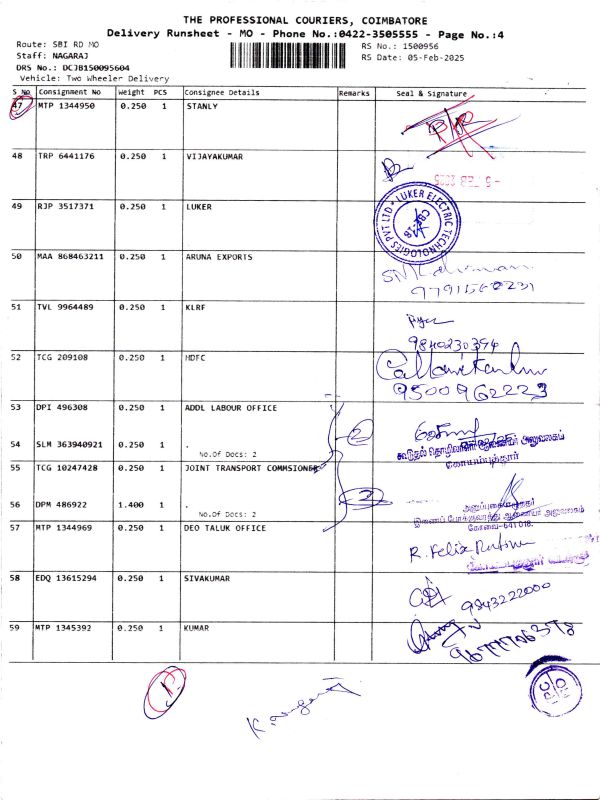 THE PROFESSIONAL COURIERS, COIMBATORE
Delivery Runsheet - MO - Phone No.:0422-3505555 - Page No.:4
Route: SBI RD MO
RS No.: 1500956
Staff: NAGARAJ
RS Date: 05-Feb-2025
DRS No.: DCJB150095604
Vehicle: Two Wheeler Delivery
S No Consignment No Weight PCS Consignee Details Remarks Seal & Signature
47 MTP 1344950 0.250 1 STANLY
48 TRP 6441176 0.250 1 VIJAYAKUMAR
-5 FEB 2025
49 RJP 3517371 0.250 1 LUKER
LUKER ELECTRIC TECHNOLOGIES PVT LTD
CBE-18
50 MAA 868463211 0.250 1 ARUNA EXPORTS
51 TVL 9964489 0.250 1 KLRF
9840230394
52 TCG 209108 0.250 1 HDFC
9500962223
53 DPI 496308 0.250 1 ADDL LABOUR OFFICE
2
54 SLM 363940921 0.250 1 .
No.Of Docs: 2
கூடுதல் தொழிலாளர் ஆணையர் அலுவலகம்
கோயம்புத்தூர்
55 TCG 10247428 0.250 1 JOINT TRANSPORT COMMSIONER
2
56 DPM 486922 1.400 1 .
No.Of Docs: 2
இணைப் போக்குவரத்து ஆணையர் அலுவலகம்
கோவை-641 018.
57 MTP 1344969 0.250 1 DEO TALUK OFFICE
R. Felix
58 EDQ 13615294 0.250 1 SIVAKUMAR
9843222000
59 MTP 1345392 0.250 1 KUMAR